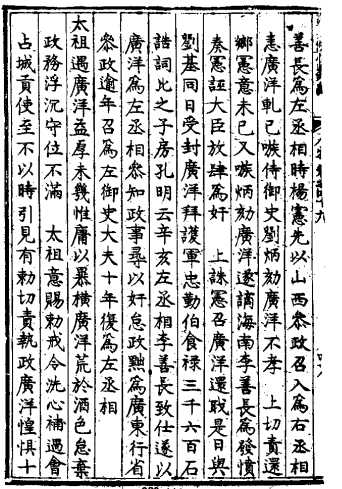 善長為左丞相時楊憲先以山西參政召入為右丞相
恚廣洋軋已嗾侍御史劉炳劾廣洋不孝　上切責還
鄉憲意未已又嗾炳劾廣洋遂謫海南李善長為發憤
奏憲誣大臣放肆為奸　上誅憲召廣洋還戢是日與
劉基同日受封廣洋拜護軍忠勤伯食祿三千六百石
誥詞比之子房孔明云辛亥左丞相李善長致仕遂以
廣洋為左丞相參知政事尋以奸怠政黜為廣東行省
參政逾年召為左御史大夫十年復為左丞相
太祖遇廣洋益厚未幾惟庸以暴橫廣洋荒於酒色怠棄
政務浮沉守位不滿　太祖意賜勅戒令洗心補過會
占城貢使至不以時引見有勅切責執政廣洋惶懼十